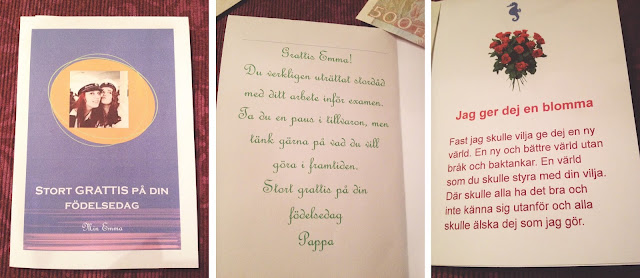 STORT GRATTIS PÅ DIN
FÖDELSEDAG
Min Emma
500
Grattis Emma!
Du verkligen uträttat stordåd
med ditt arbete inför examen.
Ta du en paus i tillvaron, men
tänk gärna på vad du vill
göra i framtiden.
Stort grattis på din
födelsedag
Pappa
Jag ger dej en blomma
Fast jag skulle vilja ge dej en ny
värld. En ny och bättre värld utan
bråk och baktankar. En värld
som du skulle styra med din vilja.
Där skulle alla ha det bra och
inte känna sig utanför och alla
skulle älska dej som jag gör.